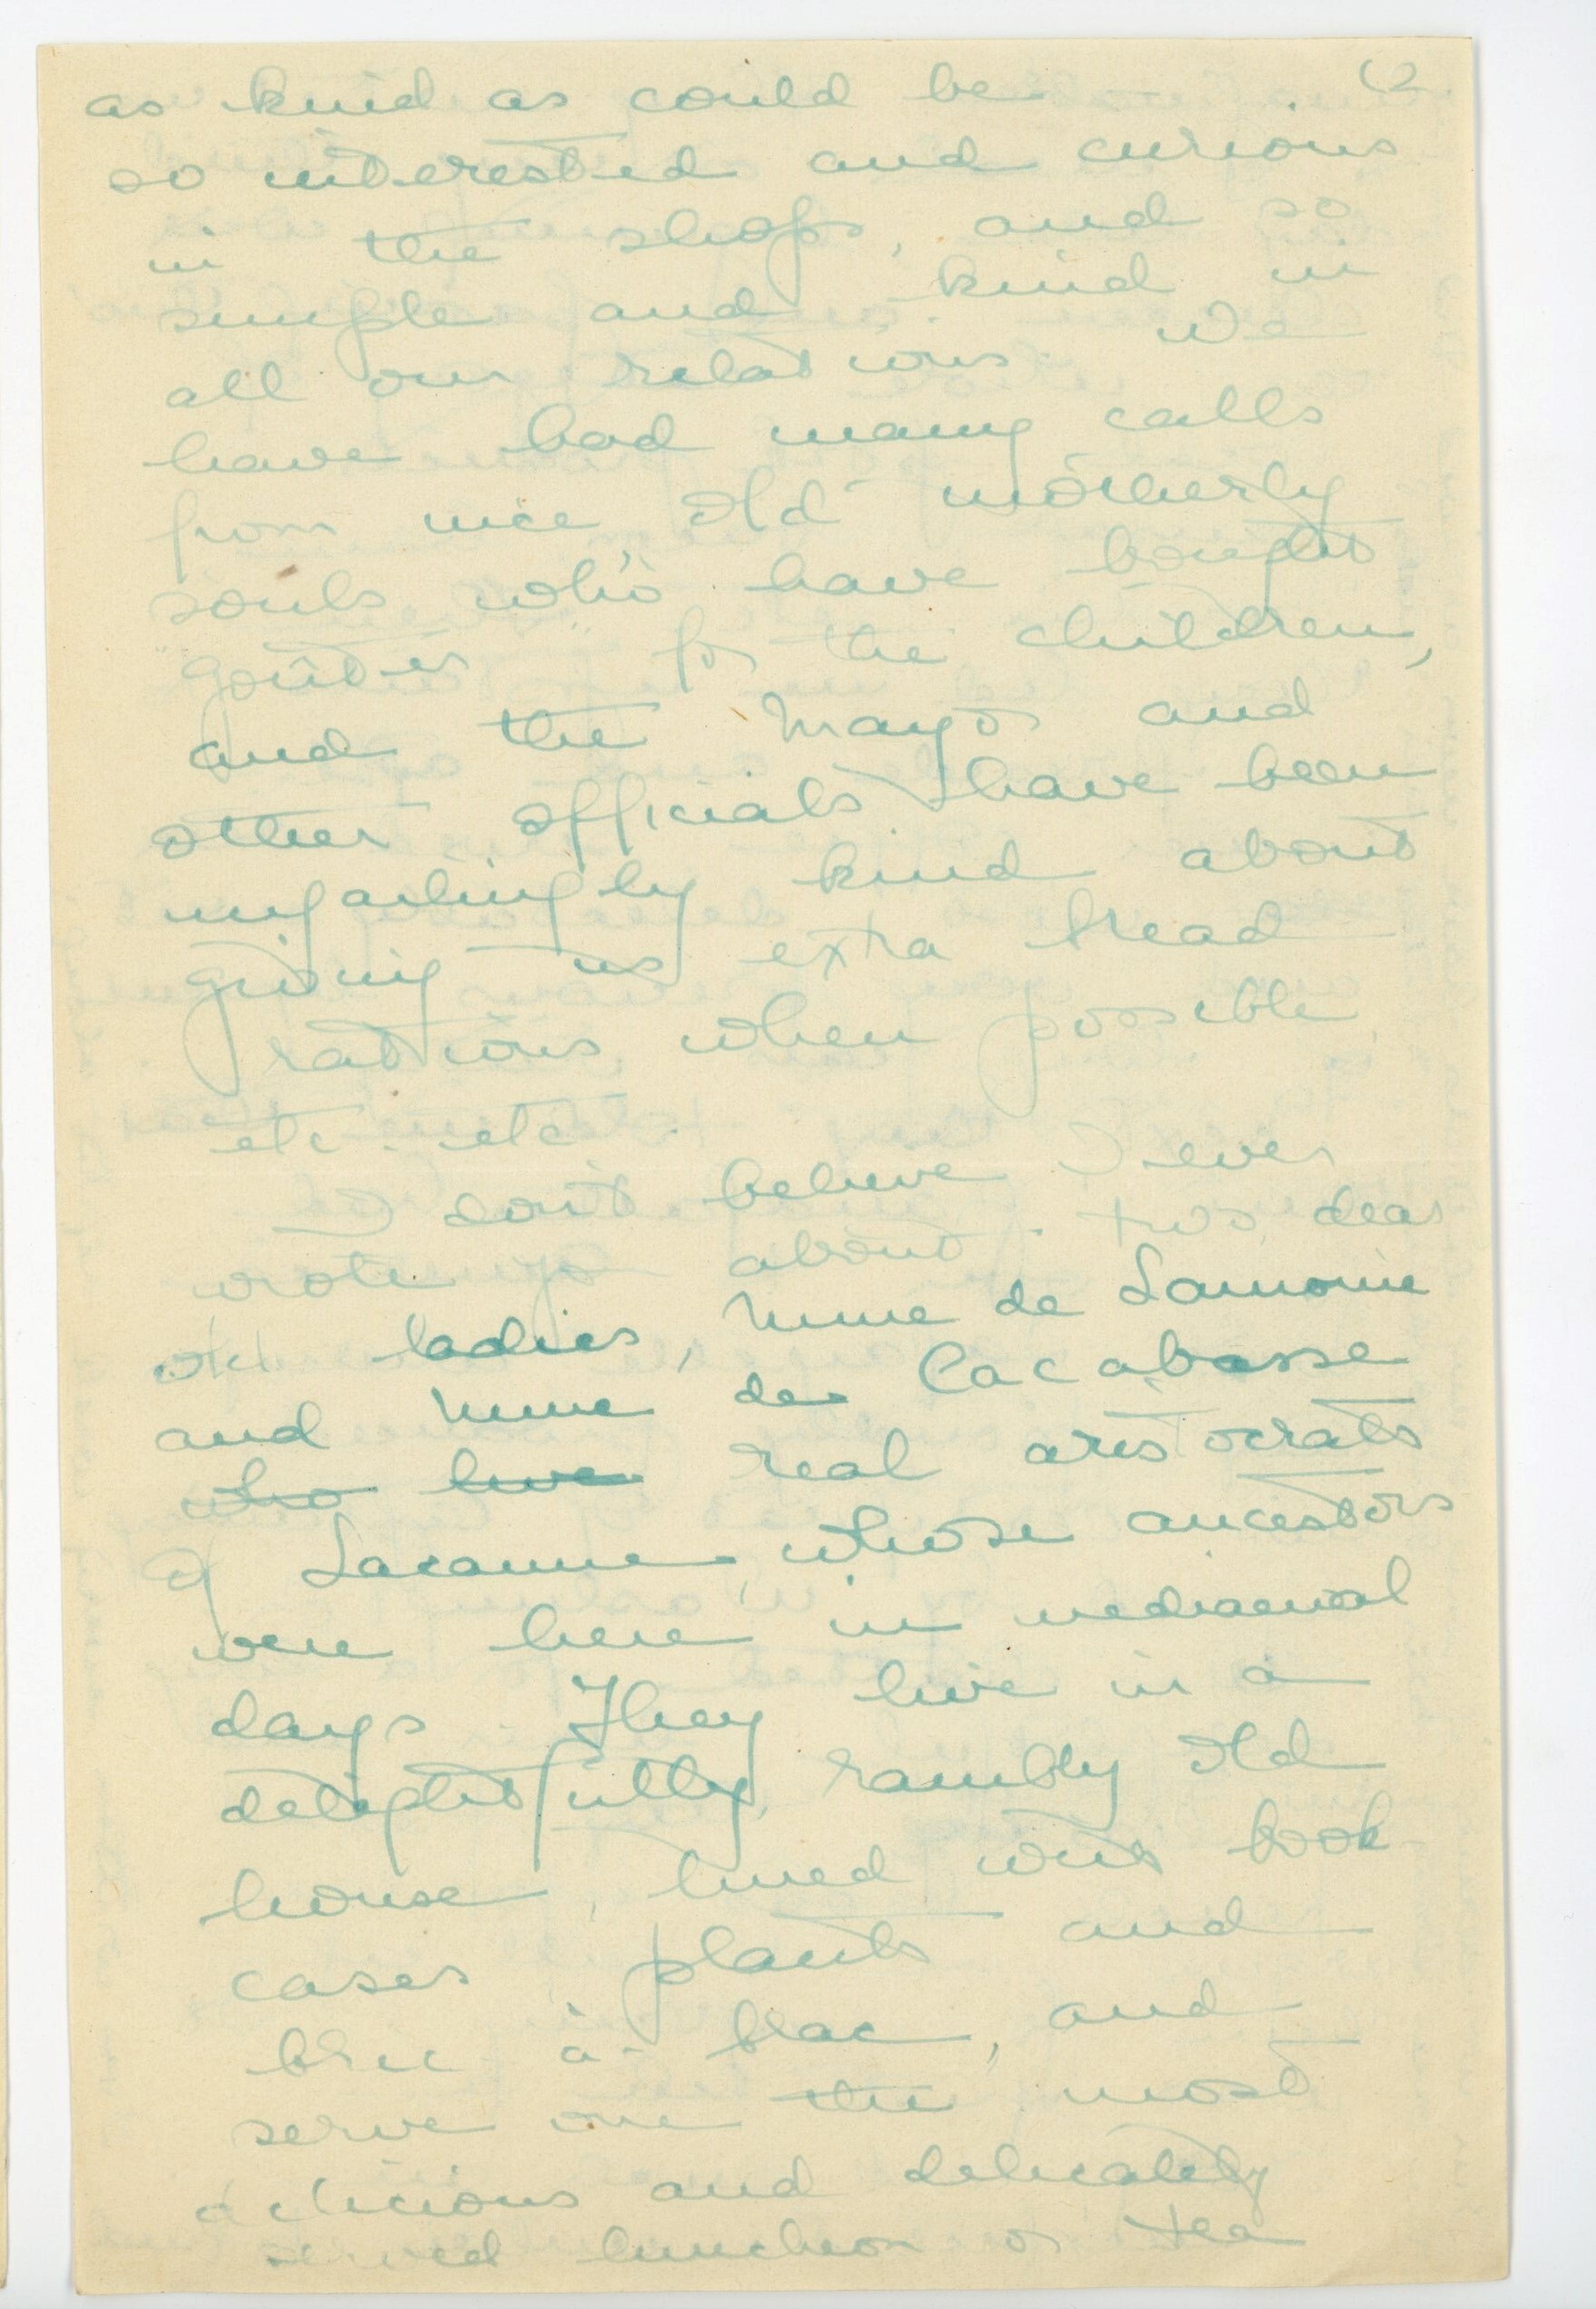 12
as kind as could be
so interested and curious
in the shops, and so
simple and kind in
all our relations. We
have had many calls
from nice old motherly
souls who have bought
goûters for the children,
and the Mayor and
other officials have been
unfailingly kind about
giving us extra bread
rations when possible
etc. etc.
I don't believe I ever
wrote you about two dear
old ladies, Mme de Lamorie
and Mme de Lacabasse
who live real aristocrats
of Lacaune, whose ancestors
were here in mediaeval
days. They live in a
delightfully rambly old
house, lined with book
cases plants and
bric à brac, and
serve one the most
delicious and delicately
served luncheon or tea